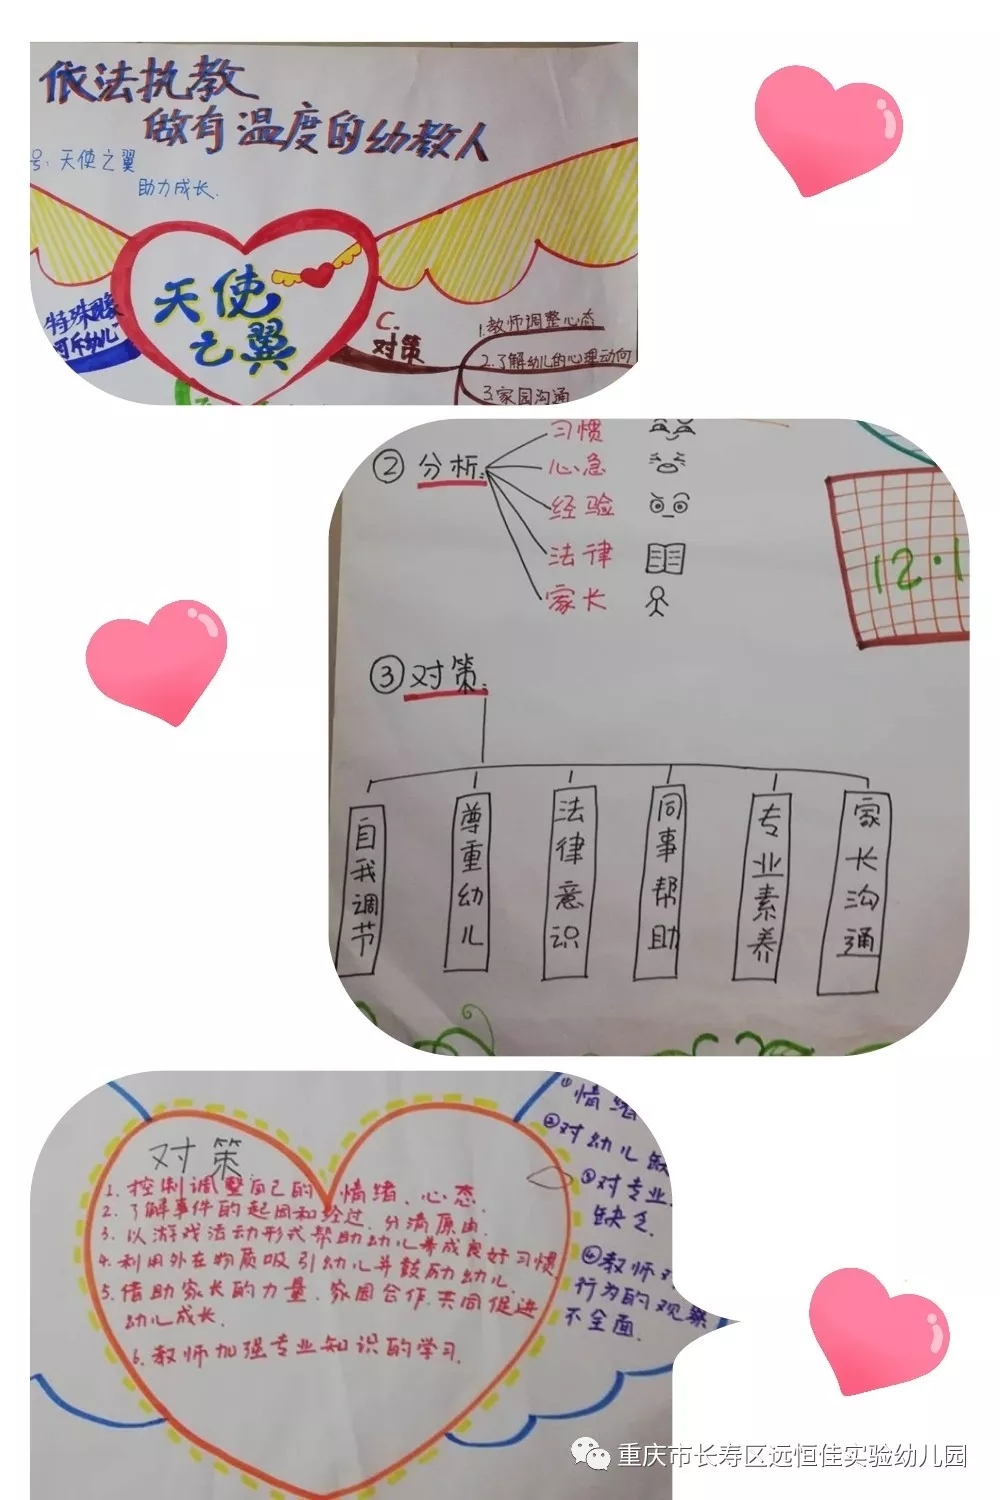 依法执教
做有温度的幼教人
号:天使之翼
助力成长.
天使
之翼
特殊现象
可乐幼儿
C.
对策
1.教师调整心态
2.了解幼儿的心理动向
3.家园沟通
②分析:
习惯
心急
经验
法律
家长
12·1
③对策:
自我调节
尊重幼儿
法律意识
同事帮助
专业素养
家长沟通
对策
1.控制调整自己的情绪、心态.
2.了解事件的起因和经过.分清原由.
3.以游戏活动形式帮助幼儿养成良好习惯
4.利用外在物质吸引幼儿并鼓励幼儿.
5.借助家长的力量.家园合作.共同促进
幼儿成长.
6.教师加强专业知识的学习.
①情绪
②对幼儿缺
③对专业
缺乏.
④教师对
行为的观察
不全面.
重庆市长寿区远恒佳实验幼儿园